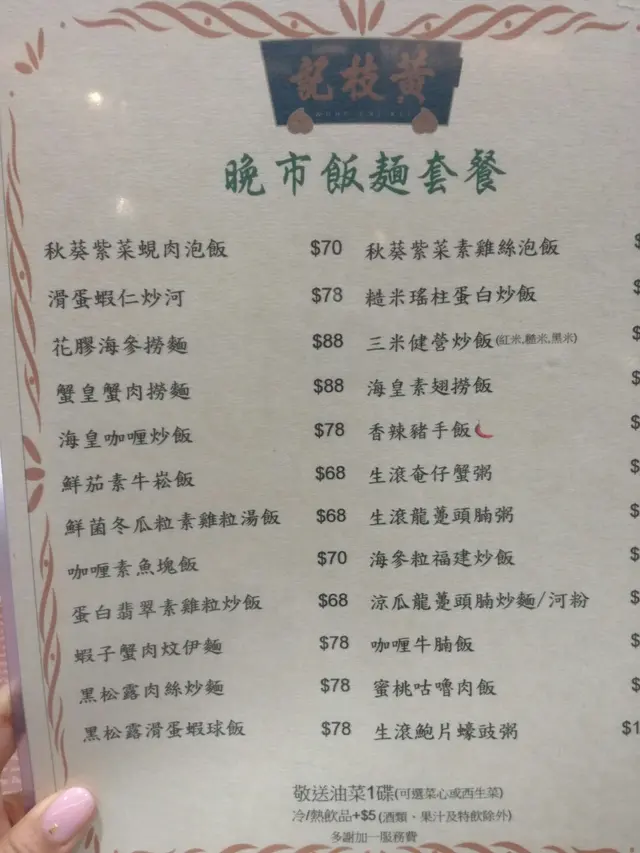 黃枝記
晚市飯麵套餐
秋葵紫菜蜆肉泡飯 $70 秋葵紫菜素雞絲泡飯 $
滑蛋蝦仁炒河 $78 糙米瑤柱蛋白炒飯 $
花膠海參撈麵 $88 三米健營炒飯(紅米,糙米,黑米) $
蟹皇蟹肉撈麵 $88 海皇素翅撈飯 $
海皇咖喱炒飯 $78 香辣豬手飯 $
鮮茄素牛崧飯 $68 生滾奄仔蟹粥 $
鮮菌冬瓜粒素雞粒湯飯 $68 生滾龍躉頭腩粥 $
咖喱素魚塊飯 $70 海參粒福建炒飯 $
蛋白翡翠素雞粒炒飯 $68 涼瓜龍躉頭腩炒麵/河粉 $
蝦子蟹肉炆伊麵 $78 咖喱牛腩飯 $
黑松露肉絲炒麵 $78 蜜桃咕嚕肉飯 $
黑松露滑蛋蝦球飯 $78 生滾鮑片蠔豉粥 $1
敬送油菜1碟(可選菜心或西生菜)
冷/熱飲品+$5(酒類、果汁及特飲除外)
多謝加一服務費